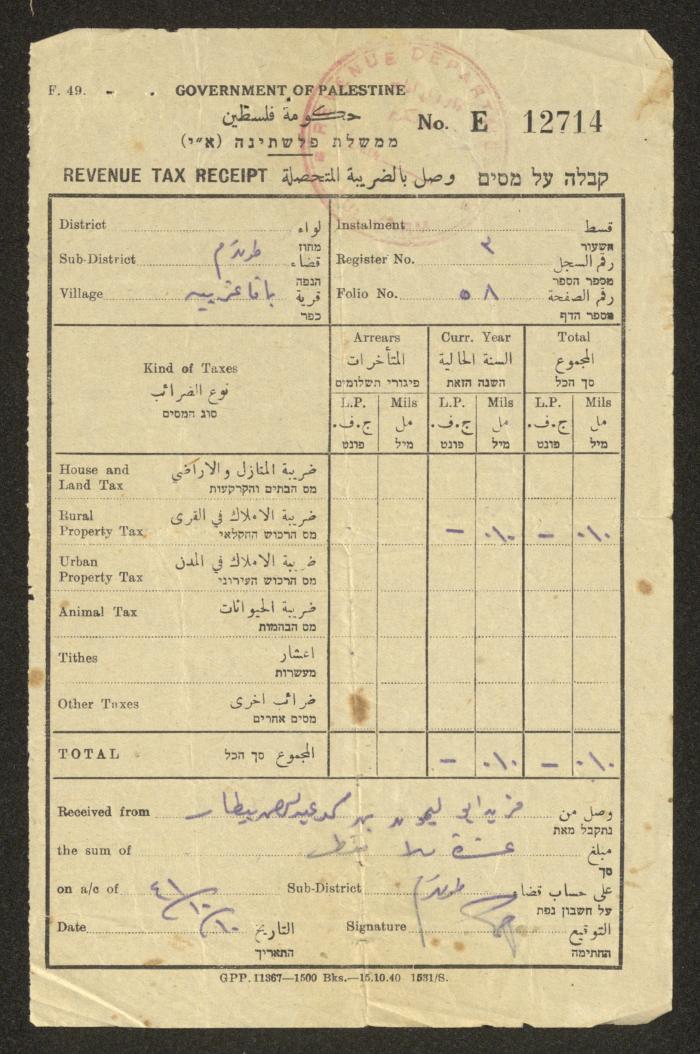 F. 49. GOVERNMENT OF PALESTINE
حكومة فلسطين
ממשלת פלשתינה (א״י)
No. E 12714
REVENUE TAX RECEIPT وصل بالضريبة المتحصلة קבלה על מסים
District لواء
מחוז
Sub-District طولكرم قضاء
הנפה
Village باقا غربيه قرية
כפר
Instalment قسط
תשעור
Register No. ٣ رقم السجل
מספר הספר
Folio No. ٥٨ رقم الصفحة
מספר הדף
Kind of Taxes
نوع الضرائب
סוג המסים
Arrears Curr. Year Total
المتأخرات السنة الحالية المجموع
פיגורי תשלומים השנה הזאת סך הכל
L.P. Mils L.P. Mils L.P. Mils
ج.ف. مل ج.ف. مل ج.ف. مل
פונט מיל פונט מיל פונט מיל
House and ضريبة المنازل والاراضي
Land Tax מס הבתים והקרקעות
Rural ضريبة الاملاك في القرى
Property Tax מס הרכוש החקלאי – ٠١٠ – ٠١٠
Urban ضريبة الاملاك في المدن
Property Tax מס הרכוש העירוני
Animal Tax ضريبة الحيوانات
מס הבהמות
Tithes اعشار
מעשרות
Other Taxes ضرائب اخرى
מסים אחרים
TOTAL סך הכל المجموع – ٠١٠ – ٠١٠
Received from وصل من
נתקבל מאת
the sum of عشرة ملا فقط مبلغ
סך
on a/c of Sub-District طولكرم على حساب قضاء
על חשבון נפת
٤١/١٠/١٠
Date التاريخ Signature التوقيع
התאריך החתימה
GPP. 11367—1500 Bks.—15.10.40 1531/S.